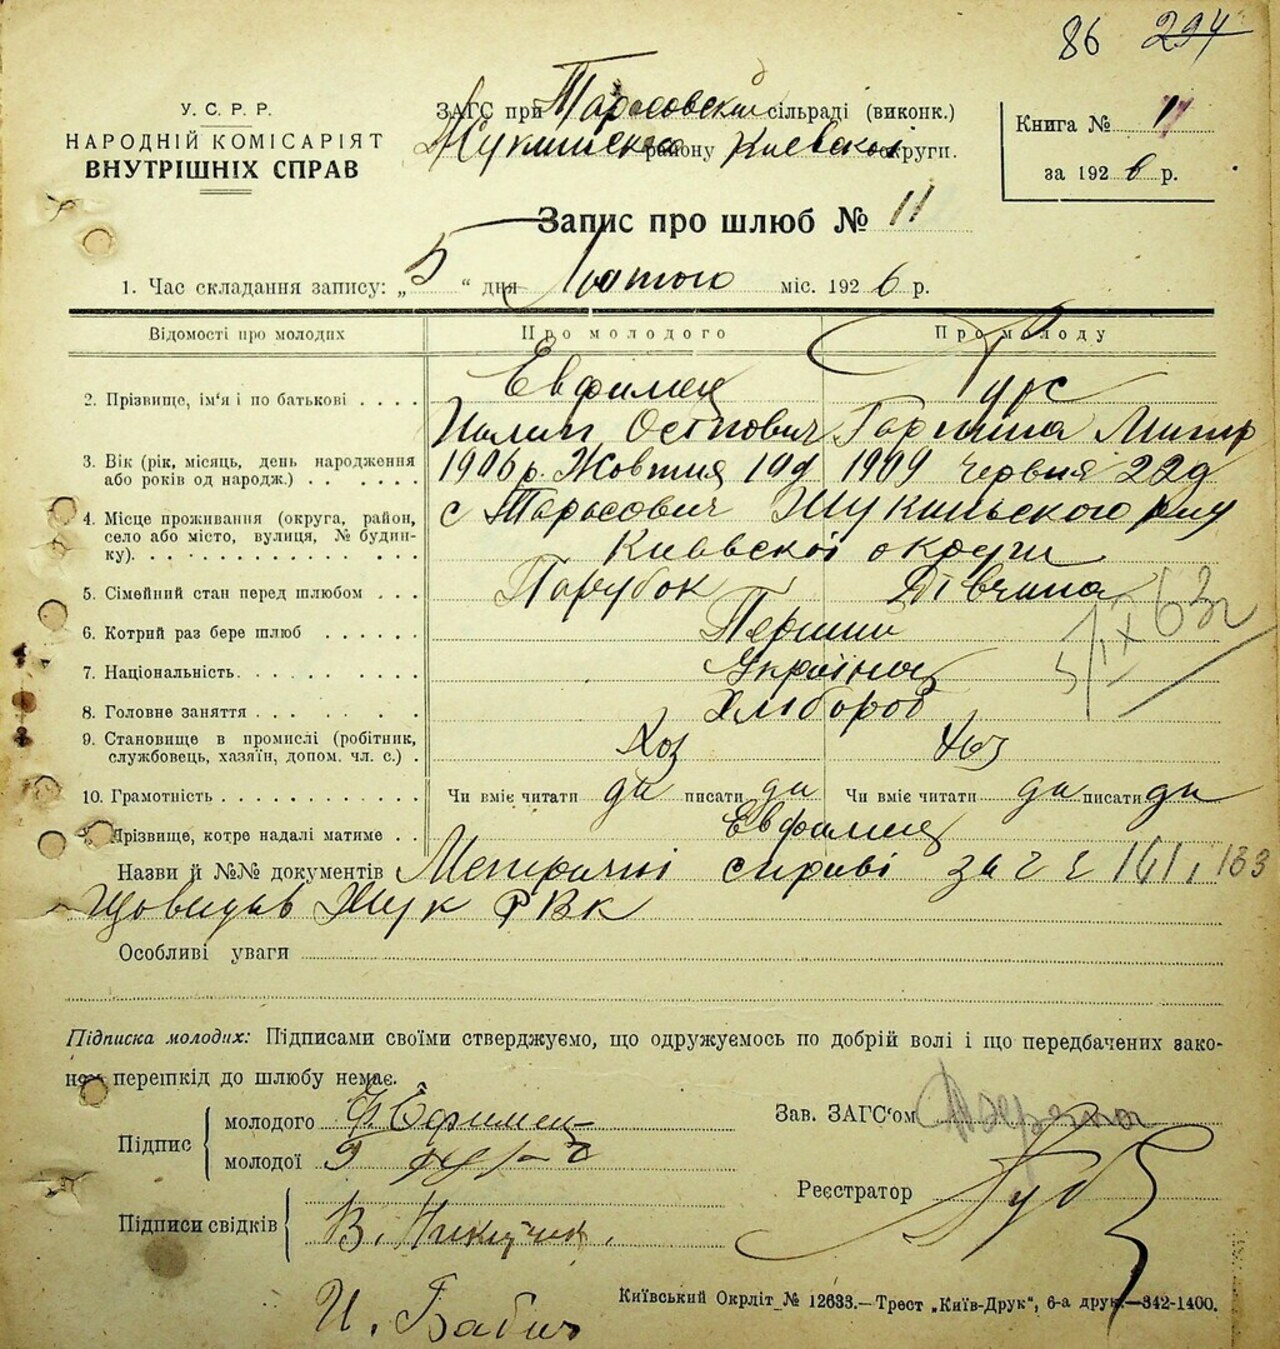 86 294
У. С. Р. Р.
НАРОДНІЙ КОМІСАРІЯТ
ВНУТРІШНІХ СПРАВ
ЗАГС при Тарасовскій сільраді (виконк.)
району Киевскої округи.
Книга № 1
за 1926 р.
Запис про шлюб № 11
1. Час складання запису: „5“ дня Лютого міс. 1926 р.
Відомості про молодих Про молодого Про молоду
2. Прізвище, ім'я і по батькові . . . . Евфимец
Осипович
3. Вік (рік, місяць, день народження 1906 р. Жовтня 19д 1909 Червня 22д
або років од народж.) . . . . . . .
4. Місце проживання (округа, район, с Тарасович Жукинського
село або місто, вулиця, № будин-
ку). . . . . . . . . . . . . . . Киевскої округи
5. Сімейний стан перед шлюбом . . . Парубок Дівчина
6. Котрий раз бере шлюб . . . . . . Перший
7. Національність. . . . . . . . . .
8. Головне заняття . . . . . . . . Хлібороб
9. Становище в промислі (робітник, Хоз Хоз
службовець, хазяїн, допом. чл. с.) .
10. Грамотність . . . . . . . . . . . . Чи вміє читати да писати да Чи вміє читати да писати да
Прізвище, котре надалі матиме . . Евфимец
Назви й №№ документів Метричні за 161, 163
Жук РВК
Особливі уваги
Підписка молодих: Підписами своїми стверджуємо, що одружуємось по добрій волі і що передбачених зако-
ном перешкід до шлюбу немає.
Підпис
молодого Ефимец
молодої
Зав. ЗАГС'ом
Реєстратор
Підписи свідків
В.
И. Бабич
Київський Окрліт № 12633.—Трест „Київ-Друк“, 6-а друк.—342-1400.